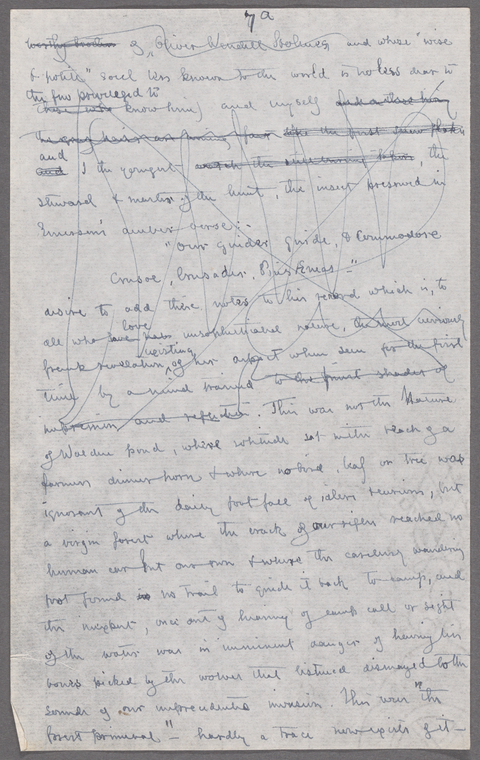 7a
worthy brother of Oliver Wendell Holmes and whose "wise
& polite" soul less known to the world is no less dear to
the few privileged to
know him, and myself
the grey hairs are coming fast like the first snow flakes
and
and I the youngest the
steward & master of the hunt, the insect preserved in
Emerson's amber verse:-
"Our guider guide, & Commodore
Crusoe, Crusader, Pius Æneas -"
desire to add these notes to his record which is, to
love
all who unsophisticated nature, the most curiously
existing
frank revelation of her aspect when seen for the first
time by a mind trained to the finest shades of
impression and reflection. This was not the Nature
of Walden pond, where whinds sat within reach of a
farmers dinner horn & where no bird, leaf or tree was
ignorant of the daily footfall of idlers reunions, but
a virgin forest where the crack of our rifles reached no
human ear but our own & where the careless wandering
foot found no trail to guide it back to camp, and
the inexpert, once out of hearing of camp call or sight
of the water was in imminent danger of having his
bones picked by the wolves that listened dismayed to the
sounds of our unprecedented invasion. This was "the
forest primeval" - hardly a trace now exists of it -